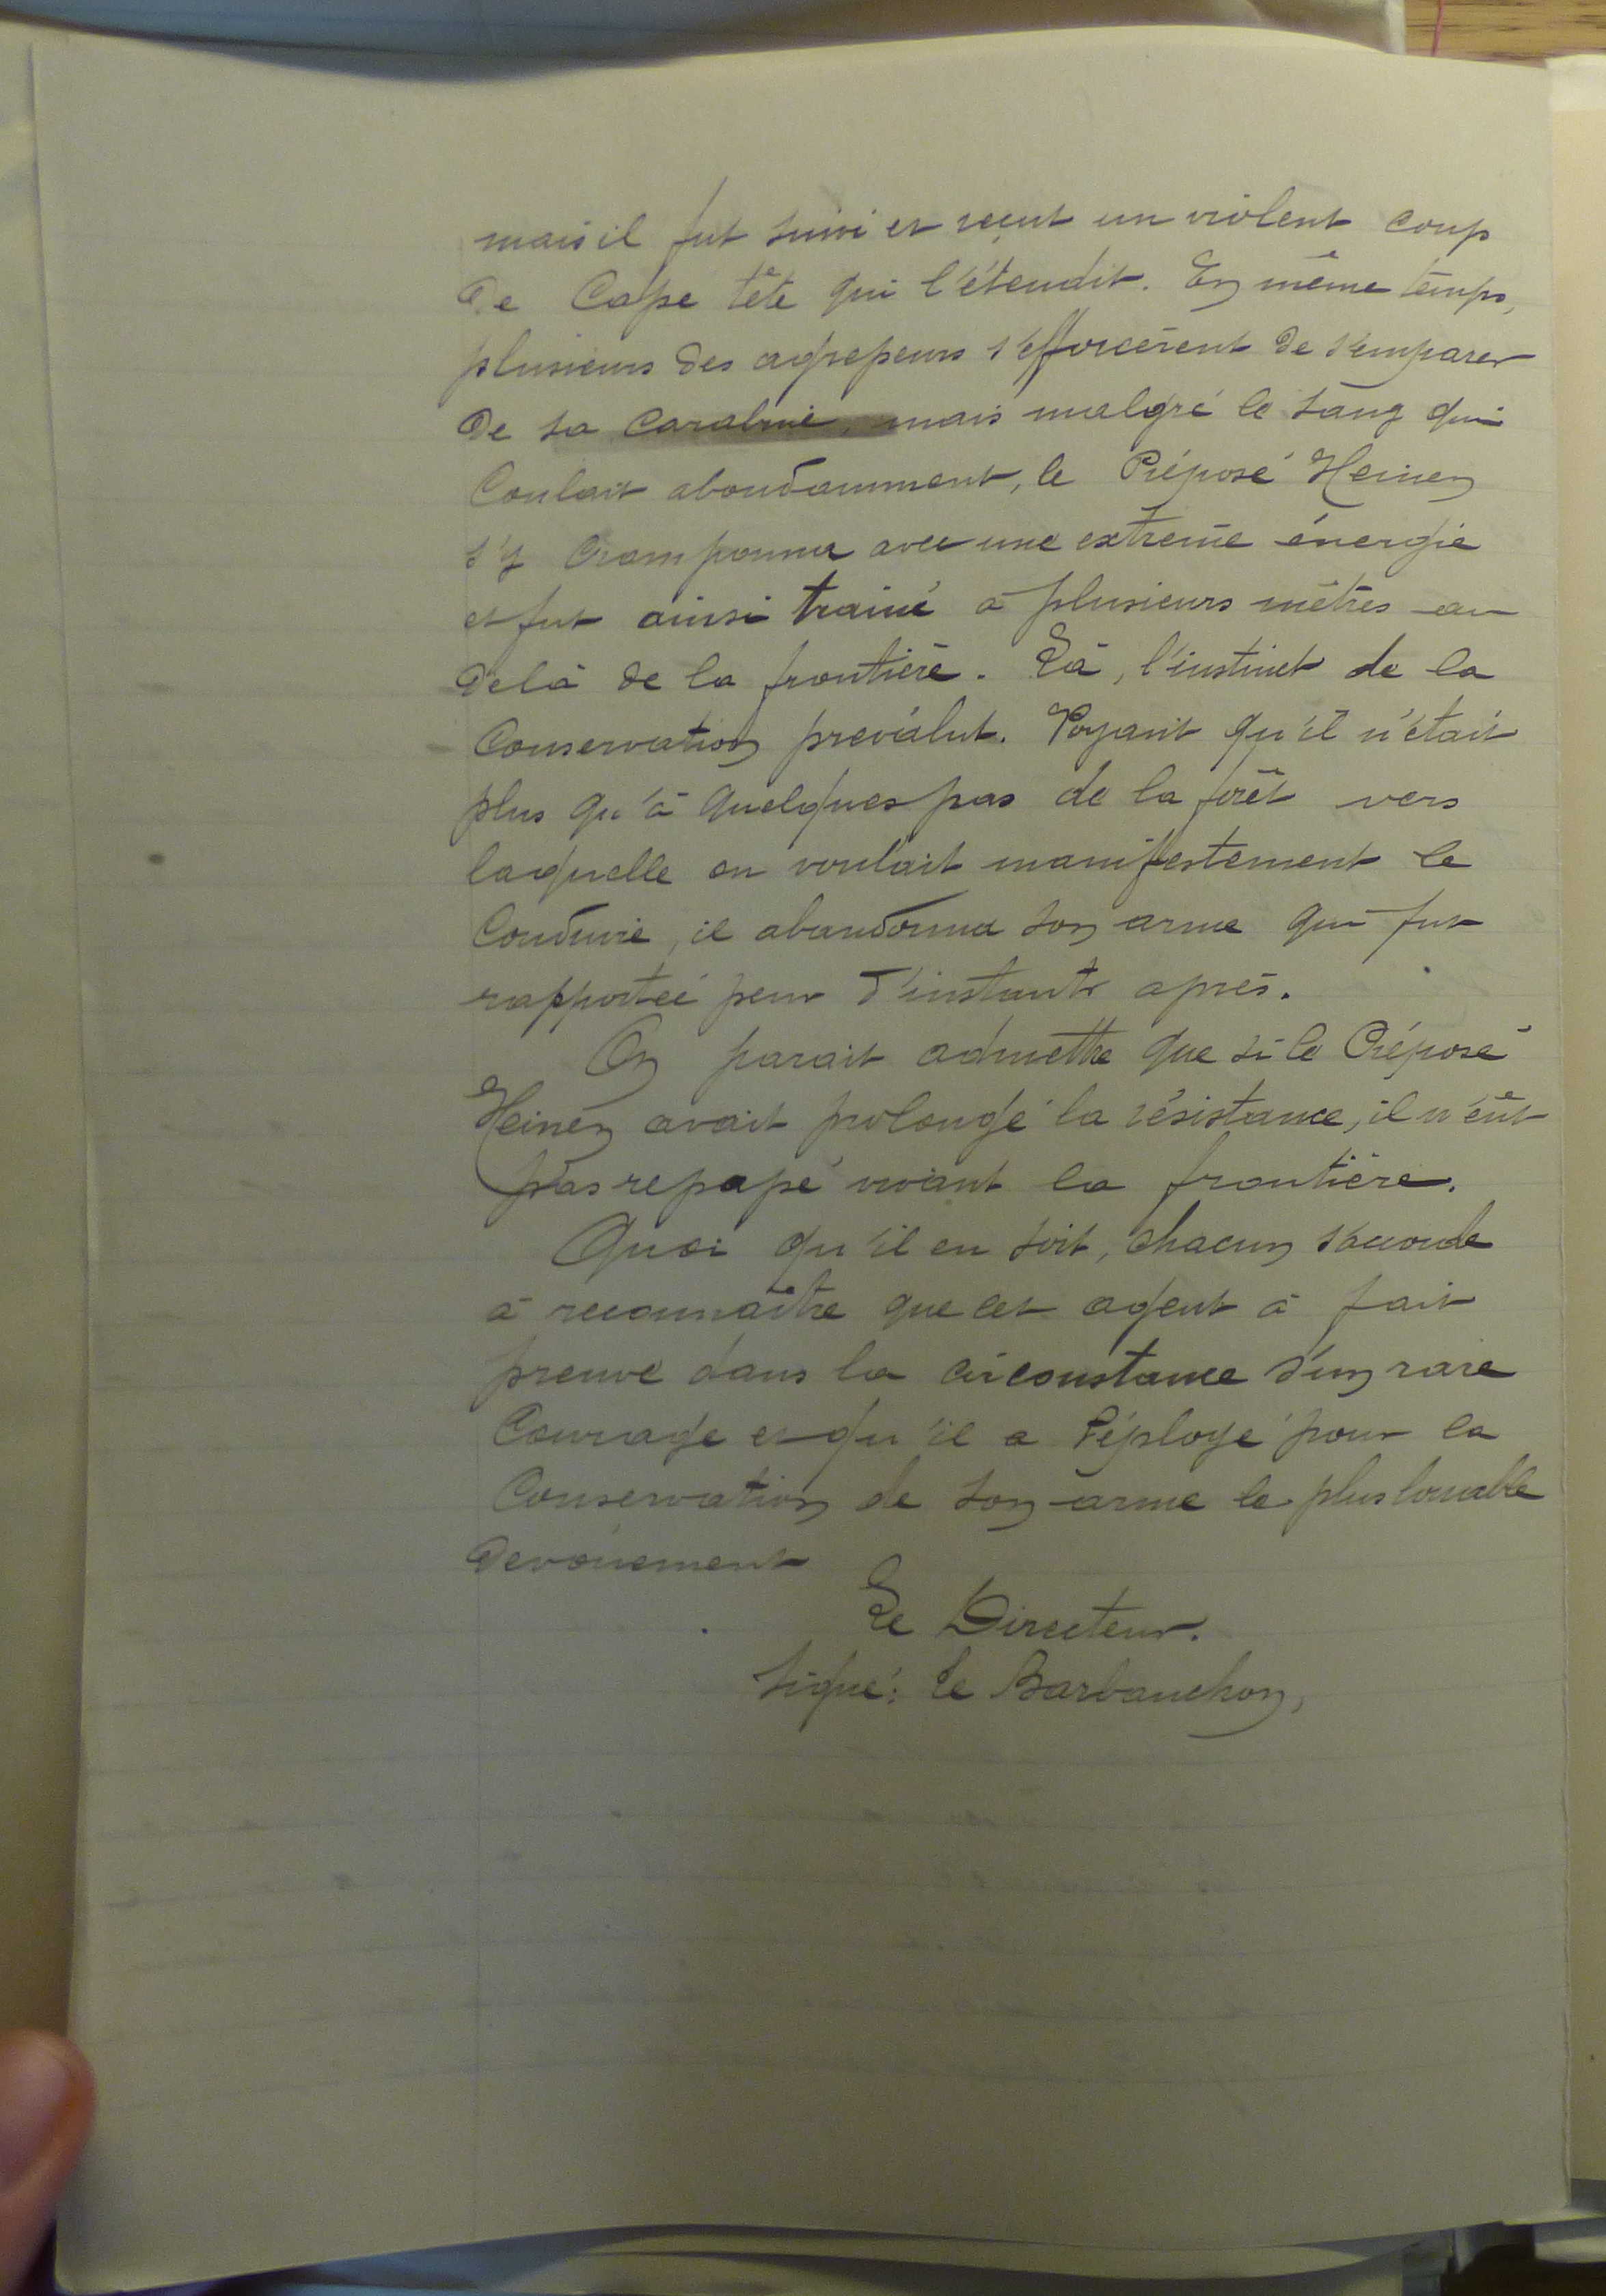 mais il fut suivi et reçut un violent coup
de casse tête qui l'étendit. En même temps,
plusieurs des agresseurs s'efforcèrent de s'emparer
de sa carabine, mais malgré le sang qui
coulait abondamment, le Préposé Heinen
s'y cramponna avec une extrême énergie
et fut ainsi trainé à plusieurs mètres au
delà de la frontière. Là, l'instinct de la
conservation prévalut. Voyant qu'il n'était
plus qu'à quelques pas de la forêt vers
laquelle on voulait manifestement le
conduire, il abandonna son arme qui fut
rapportée peu d'instants après.
On parait admettre que si le Préposé
Heinen avait prolongé la résistance, il n'eût
pas repassé vivant la frontière.
Quoi qu'il en soit, chacun s'accorde
à reconnaître que cet agent à fait
preuve dans la circonstance d'un rare
courage et qu'il a déployé pour la
conservation de son arme le plus louable
dévouement
Le Directeur.
Signé: Le Barbanchon,